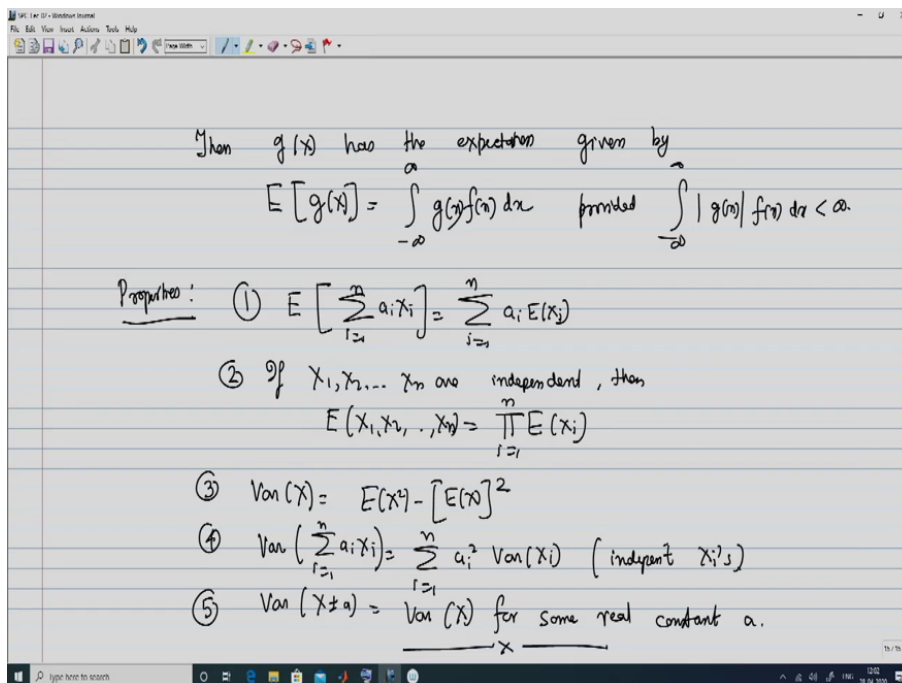 SPC Lec 02 - Windows Journal
File Edit View Insert Actions Tools Help
Page Width
Then g(X) has the expectation given by
E[g(X)] = ∫_{-∞}^{∞} g(x)f(x) dx provided ∫_{-∞}^{∞} |g(x)| f(x) dx < ∞.
Properties: ① E[∑_{i=1}^{n} a_i X_i] = ∑_{i=1}^{n} a_i E(X_i)
② If X_1, X_2, ... X_n are independend, then
E(X_1, X_2, .., X_n) = ∏_{i=1}^{n} E(X_i)
③ Var(X) = E(X²) - [E(X)]²
④ Var(∑_{i=1}^{n} a_i X_i) = ∑_{i=1}^{n} a_i² Var(X_i) (indepent X_i's)
⑤ Var(X ± a) = Var(X) for some real constant a.
x
15 / 15
Type here to search
ENG
12:02